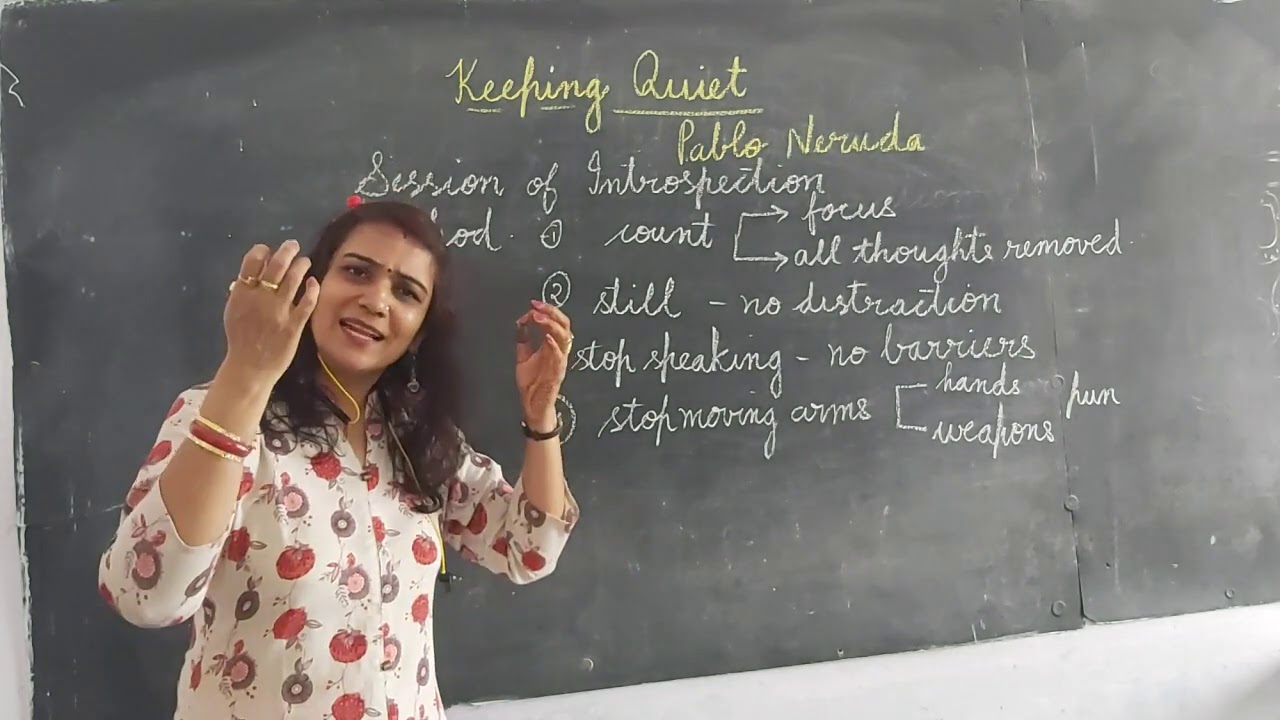 Keeping Quiet
Pablo Neruda
Session of Introspection
① count → focus
→ all thoughts removed.
② still - no distraction
stop speaking - no barriers
stop moving arms hands
weapons pun